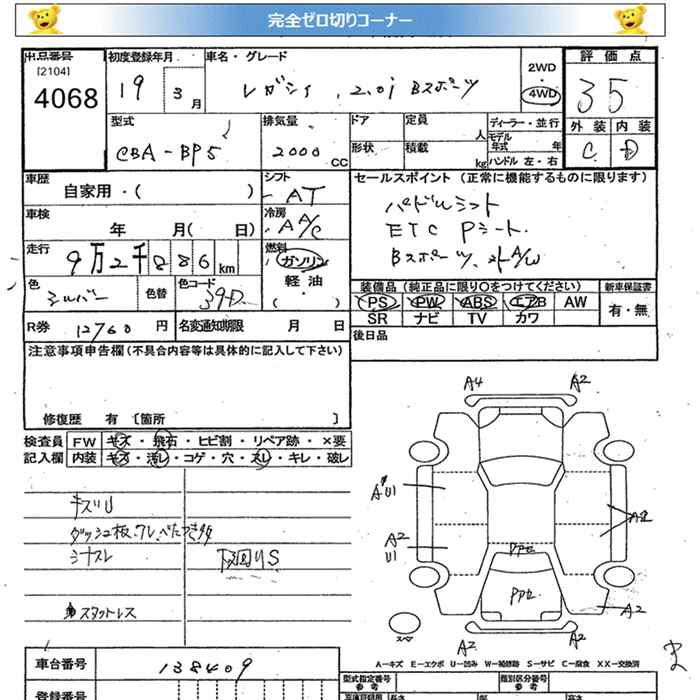 完全ゼロ切りコーナー
出品番号 初度登録年月 車名・グレード 2WD ・ 4WD 評価点
[2104]
4068 19 3月 レガシィ 2.0i Bスポーツ 35
型式 排気量 ドア 定員 人 ディーラー・並行 外装 内装
CBA-BP5 2000cc 形状 積載 kg モデル年式 年 ハンドル 左・右 C D
車歴 シフト セールスポイント (正常に機能するものに限ります)
自家用・( ) AT パドルシフト
車検 冷房 ETC Pシート
年 月( 日) A/C Bスポーツ A/W
走行 燃料
9万2千886km ガソリン
色 色替 色コード 軽油 装備品 (純正品に限り○をつけてください) 新車保証書
シルバー 39D ・( ) PS PW ABS エアB AW 有・無
R券 12760円 名変通知期限 月 日 SR ナビ TV カワ
注意事項申告欄(不具合内容等は具体的に記入して下さい) 後日品
修復歴 有 [箇所 ]
検査員 FW キズ・飛石・ヒビ割・リペア跡・×要
記入欄 内装 キズ・汚レ・コゲ・穴・スレ・キレ・破レ
A4 A2
キズU
ダッシュ板、フレ、べたつき多
シナスレ 下廻りS
スタットレス
A U1
A2
A2 U1
PPセ
PPセ
A2
スペア
A2 A2
A-キズ E-エクボ U-凹み W-補修跡 S-サビ C-腐食 XX-交換済
車台番号 138409
型式指定番号 参考 類別区分番号 参考
登録番号